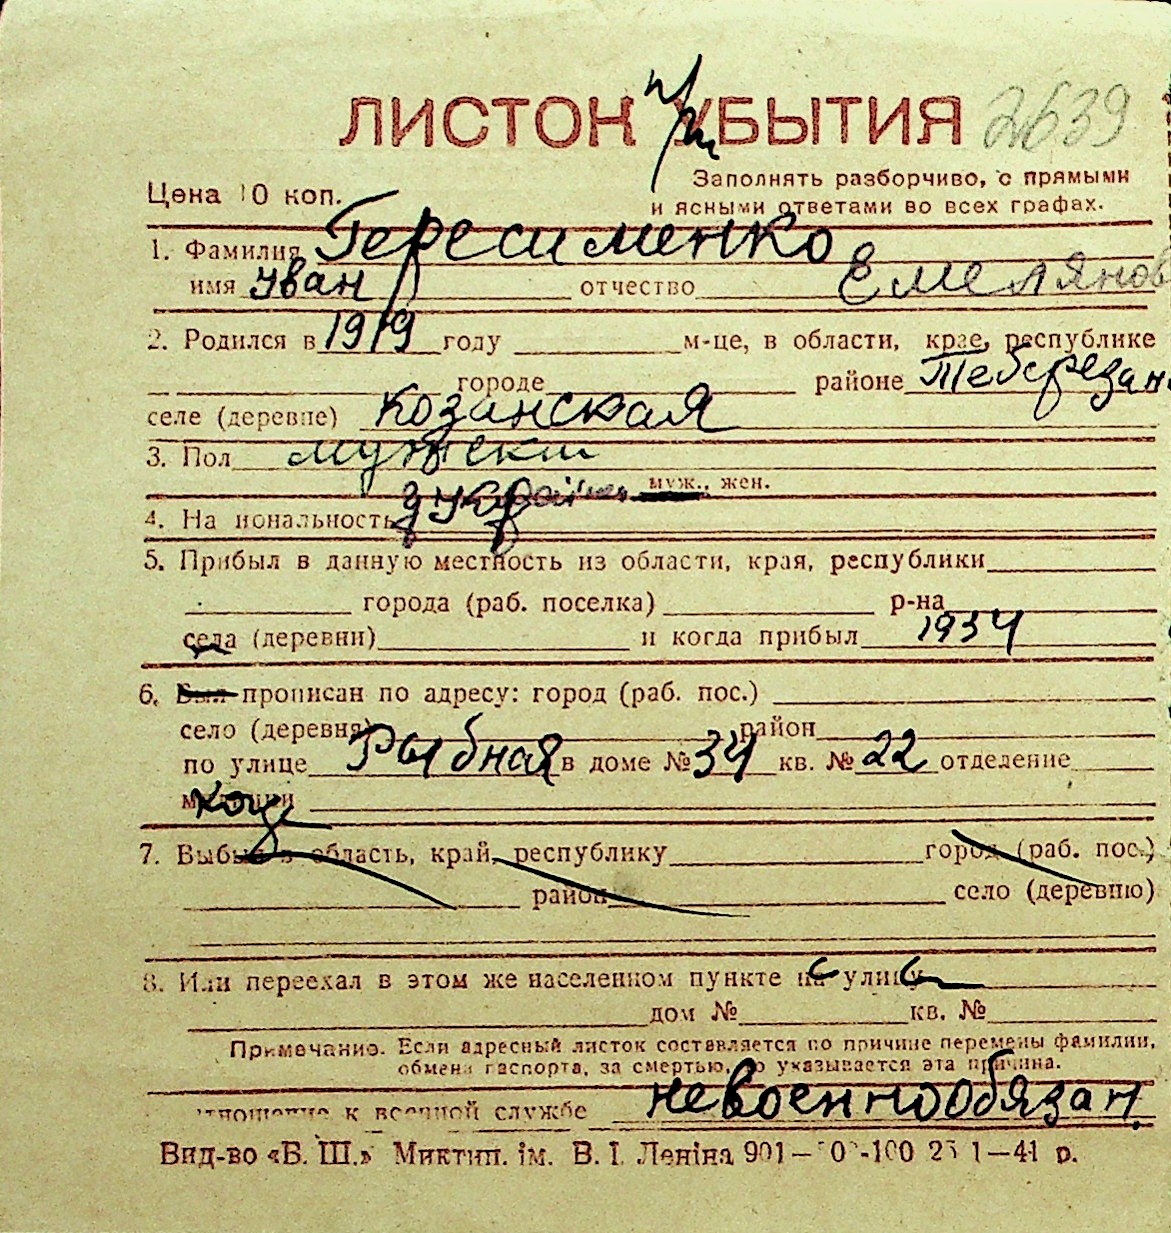 ЛИСТОК УБЫТИЯ 2639
Цена 10 коп.
Заполнять разборчиво, с прямыми
и ясными ответами во всех графах.
1. Фамилия Гересименко
имя Иван отчество Емелянов
2. Родился в 1919 году м-це, в области, крае, республике
городе районе Тебсрезан
селе (деревне) Козинская
3. Пол мужской
муж., жен.
4. На иональность
5. Прибыл в данную местность из области, края, республики
города (раб. поселка) р-на
села (деревни) и когда прибыл 1934
6. Был прописан по адресу: город (раб. пос.)
село (деревня) район
по улице Рыбная в доме № 34 кв. № 22 отделение
милиции
7. Выбыл в область, край, республику город (раб. пос.)
район село (деревню)
8. Или переехал в этом же населенном пункте на с улицу
дом № кв. №
Примечание. Если адресный листок составляется по причине перемены фамилии,
обмена паспорта, за смертью, то указывается эта причина.
отношение к военной службе невоеннообязан.
Вид-во «Б. Ш.» Миктип. ім. В. І. Леніна 901— 0 -100 25 1—41 р.